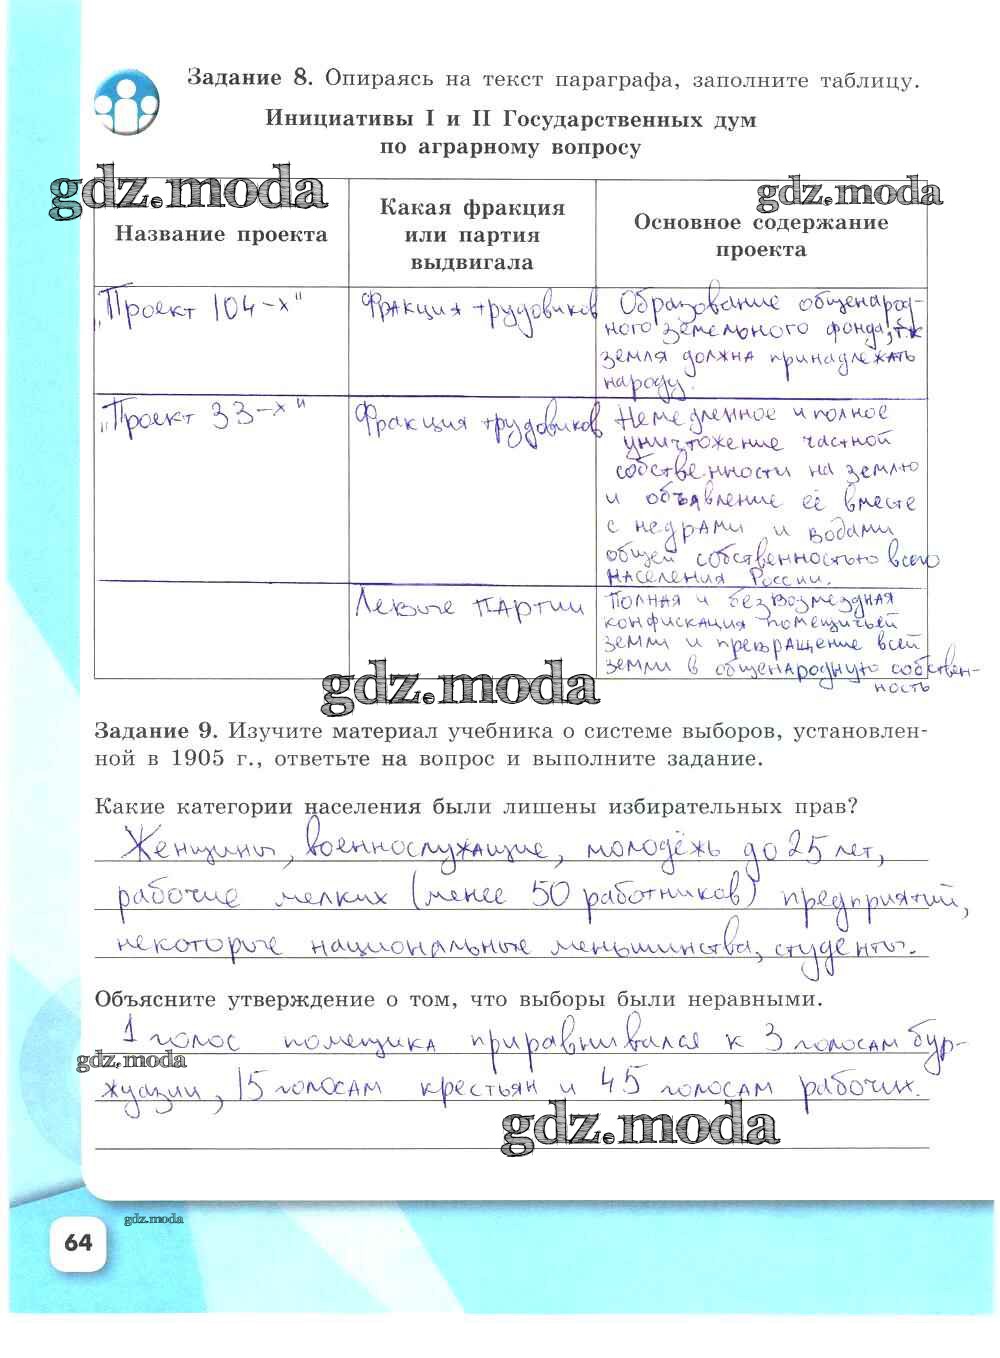 Задание 8. Опираясь на текст параграфа, заполните таблицу.
Инициативы I и II Государственных дум
по аграрному вопросу
gdz.moda
gdz.moda
Название проекта
Какая фракция
или партия
выдвигала
Основное содержание
проекта
„Проект 104-х"
Фракция трудовиков
Образование общенарод-
ного земельного фонда, т.к
земля должна принадлежать
народу.
„Проект 33-х"
Фракция трудовиков
Немедленное и полное
уничтожение частной
собственности на землю
и объявление её вместе
с недрами и водами
общей собственностью всего
населения России.
Левые партии
Полная и безвозмездная
конфискация помещичьей
земли и превращение всей
земли в общенародную собствен-
ность
gdz.moda
Задание 9. Изучите материал учебника о системе выборов, установлен-
ной в 1905 г., ответьте на вопрос и выполните задание.
Какие категории населения были лишены избирательных прав?
Женщины, военнослужащие, молодёжь до 25 лет,
рабочие мелких (менее 50 работников) предприятий,
некоторые национальные меньшинства, студенты.
Объясните утверждение о том, что выборы были неравными.
1 голос помещика приравнивался к 3 голосам бур-
gdz.moda
жуазии, 15 голосам крестьян и 45 голосам рабочих.
gdz.moda
gdz.moda
64